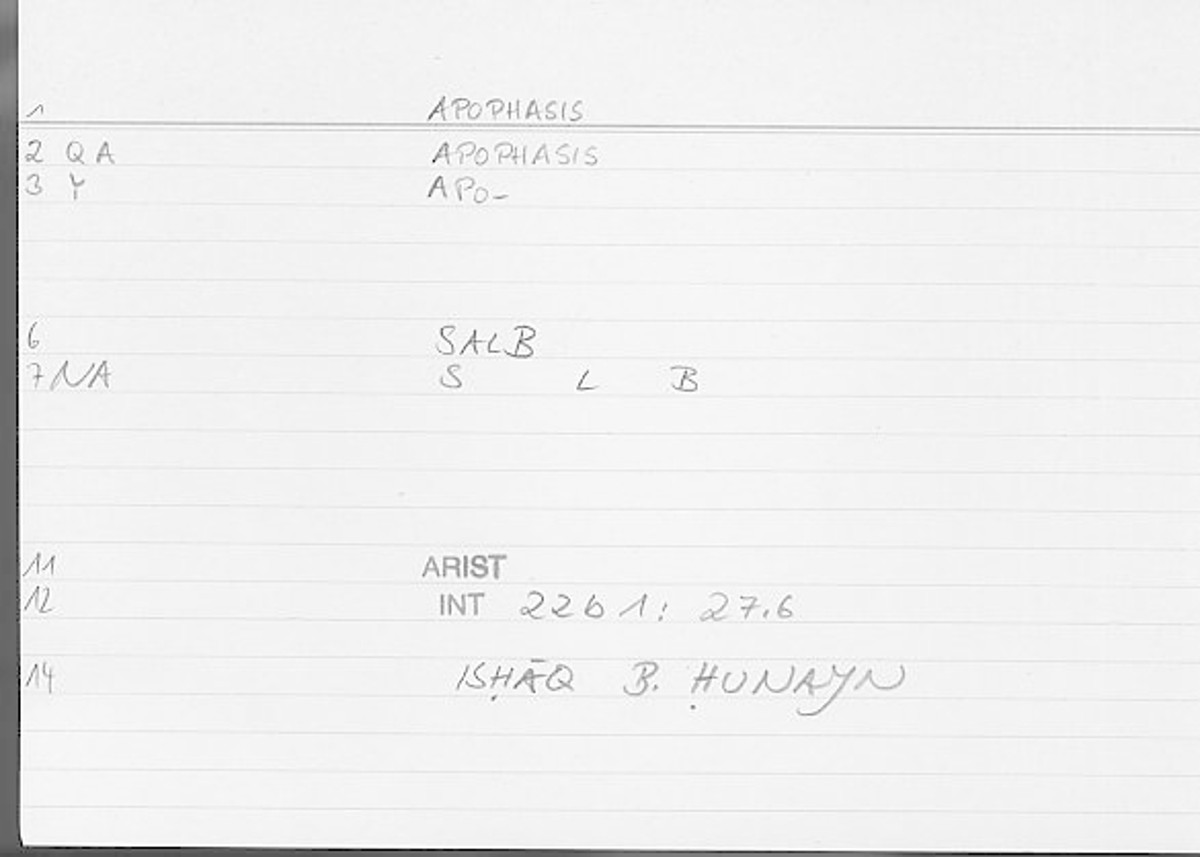 1 APOPHASIS
2 QA APOPHASIS
3 Y APO-
6 SALB
7 NA S L B
11 ARIST
12 INT 22b1: 27.6
14 ISḤĀQ B. ḤUNAYN